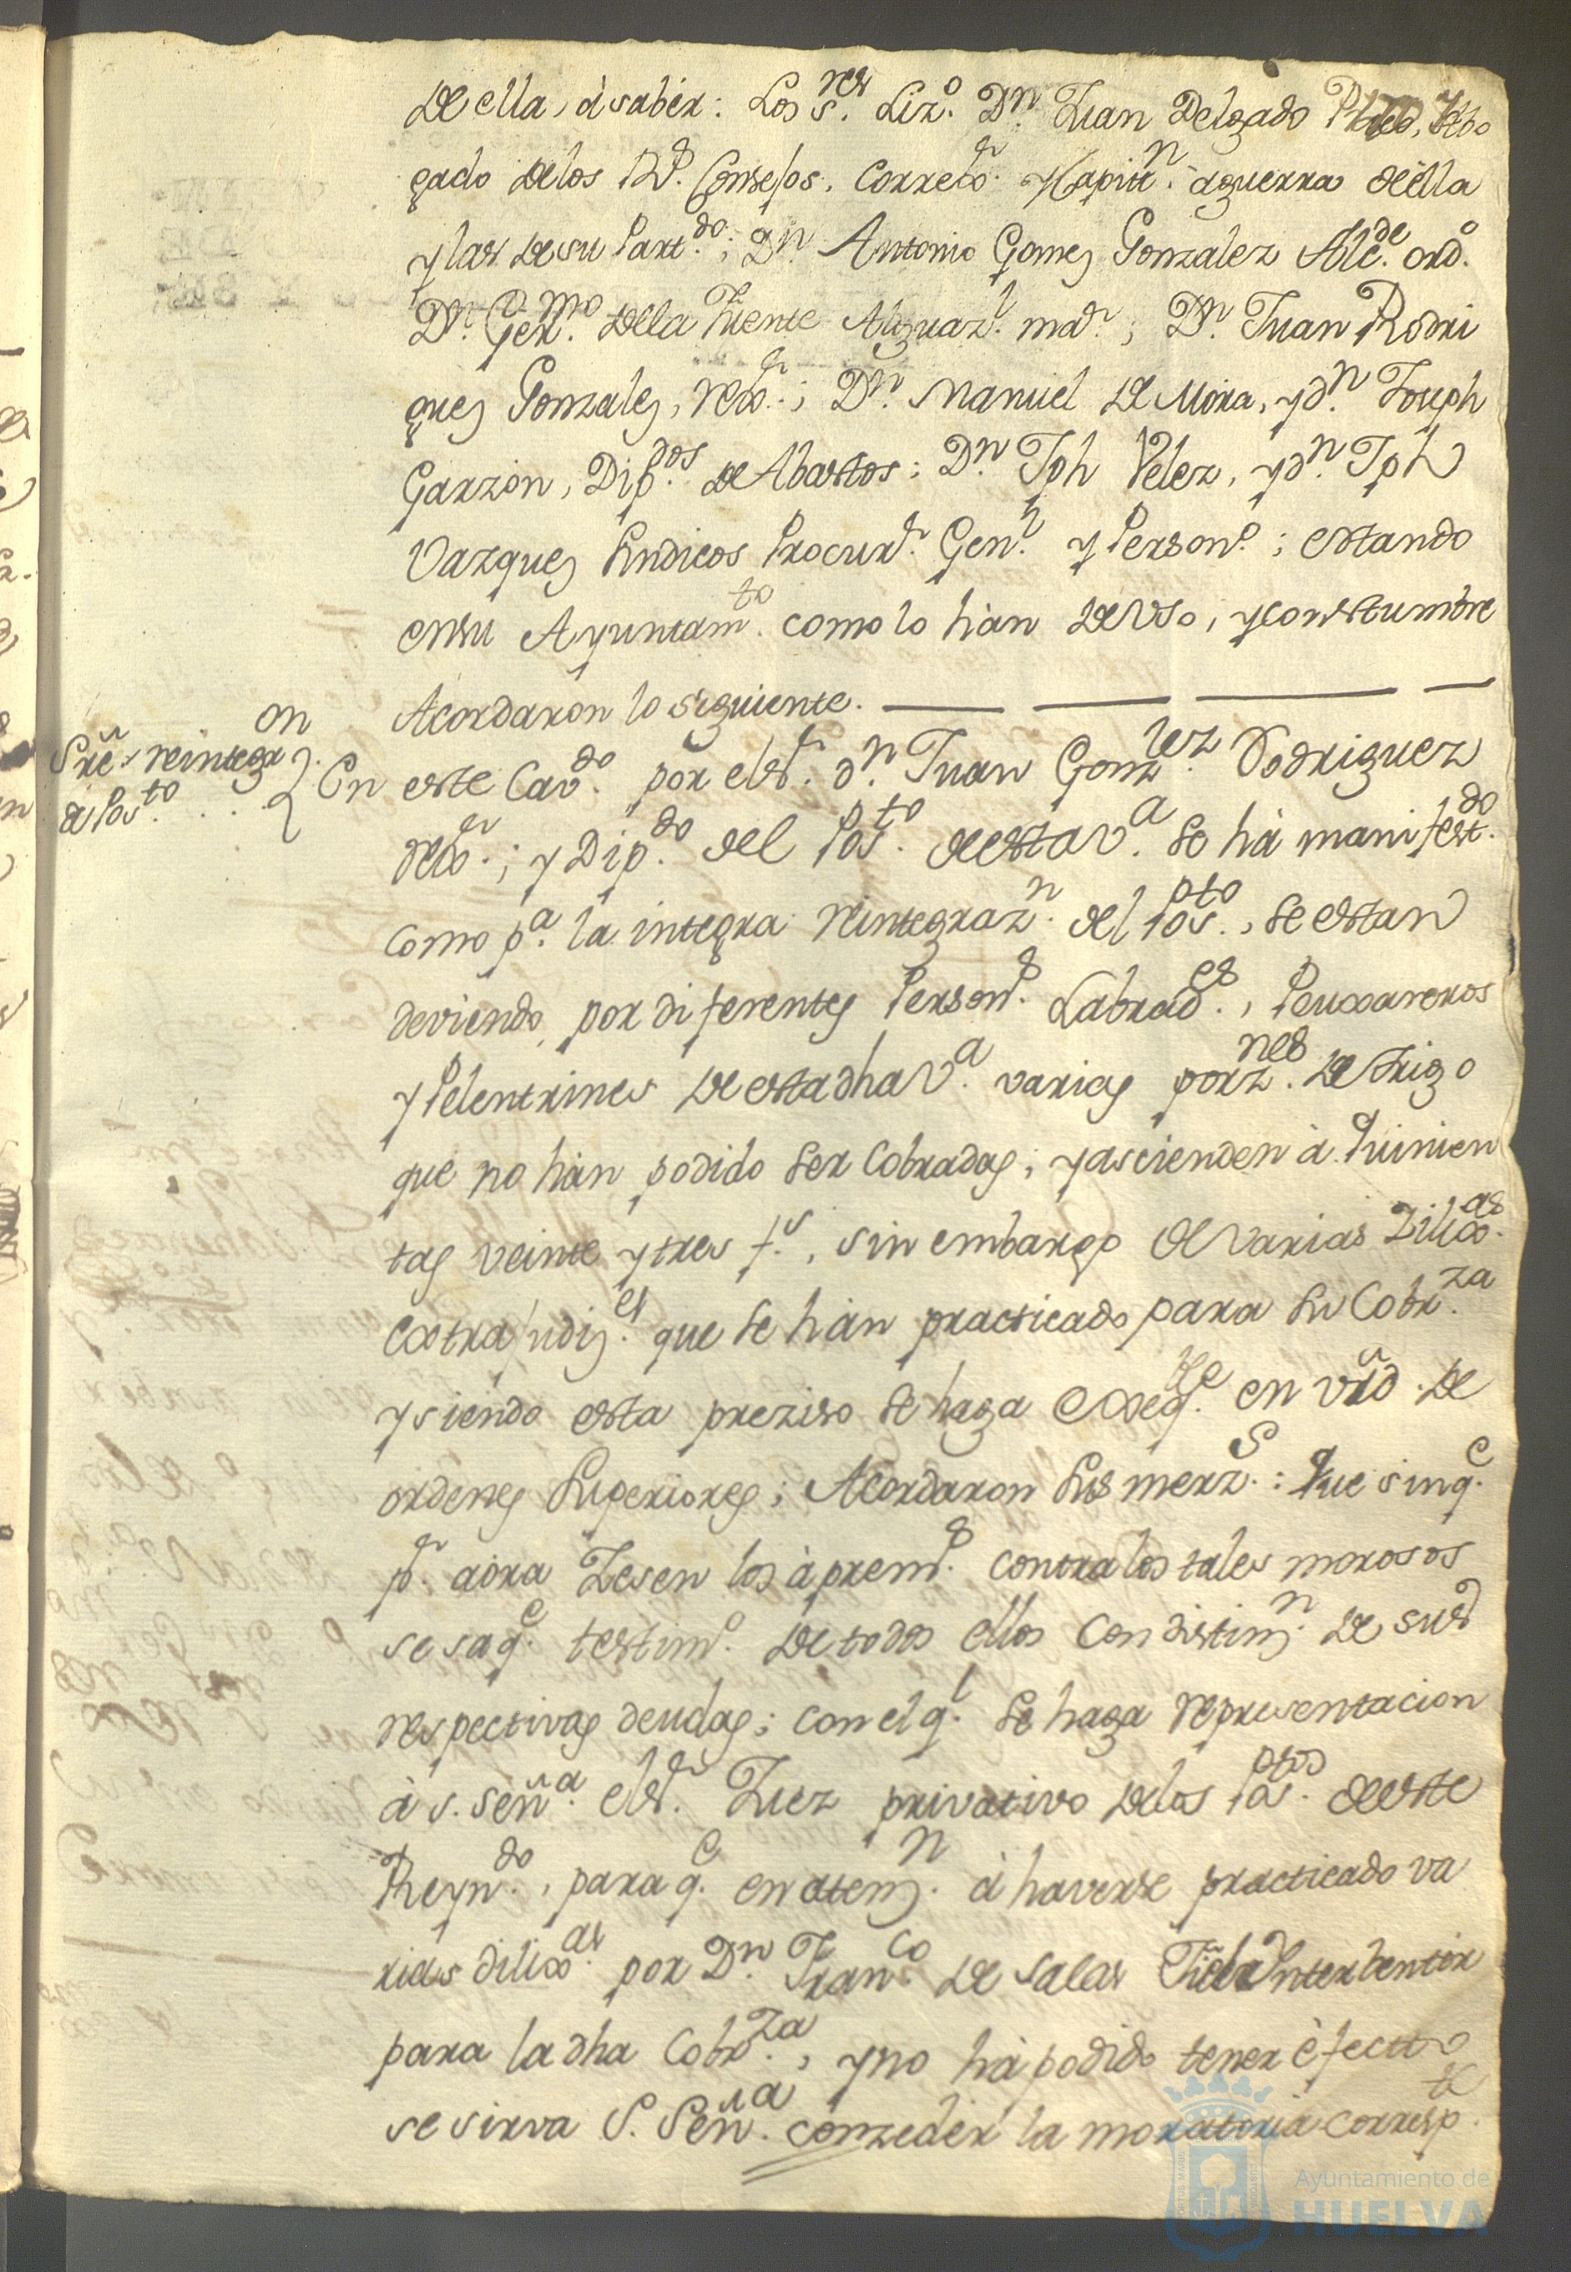 de ella, à saber: Los s.res Liz.o D.n Juan Delgado Abo
gado delos R.s Consejos, Correx.r y Capit.n aguerra deella
ylas desu Part.do; D.n Antonio Gomez Gonzalez Alc.de ord.o
D.n Ger.mo dela Fuente Alguaz.l ma.r; D.n Juan Rodri
guez Gonzalez, rex.r; D.n Manuel de Mora, y d.n Joseph
Garzon, Dip.dos de Abastos; D.n Jph Velez, y d.n Jph
Vazquez Sindicos Procur.r Gen.l y Person.o; estando
ensu Ayuntam.to como lo hàn de Uso, y costumbre
Acordaron lo siguiente.
Sre. reintegr.on
de Pos.to
En este Cav.do por el s.r d.n Juan Gonz.lez Rodriguez
rex.r; y Dip.do del Pos.to deesta V.a se hà manifest.do
como p.a la integra reintegraz.n del Pos.to, se estan
deviendo, por diferentes Person.s Labrad.es, Peuxareros
y Pelentrines de esta dha V.a varias porz.nes de Trigo
que no hàn podido ser Cobradas; y ascienden à Quinien
tas veinte y tres f.s, sin embargo de varias Dilix.as
Extrajudiz.es que se hàn practicado para su Cobr.za
y siendo esta preziso se haga Exeq.ble en vrd. de
ordenes Superiores; Acordaron Sus merz.s: Que sinq.e
p.r aora Zesen los àprem.s contra los tales morosos
se saq.e testim.o de todos ellos con distinz.n de sus
respectivas deudas; con el q.l se haga representacion
à s. señ.a el s.r Juez privativo delos Pos.tos deeste
Reyn.do, para q.e en atenz.n à haverse practicado va
rias dilix.as por D.n Fran.co de Salas Fiel Interbentor
para la dha Cobr.za, y no hà podido tener èfecto
se sirva S. Señ.a conzeder la moratoria corresp.te
Ayuntamiento de
HUELVA